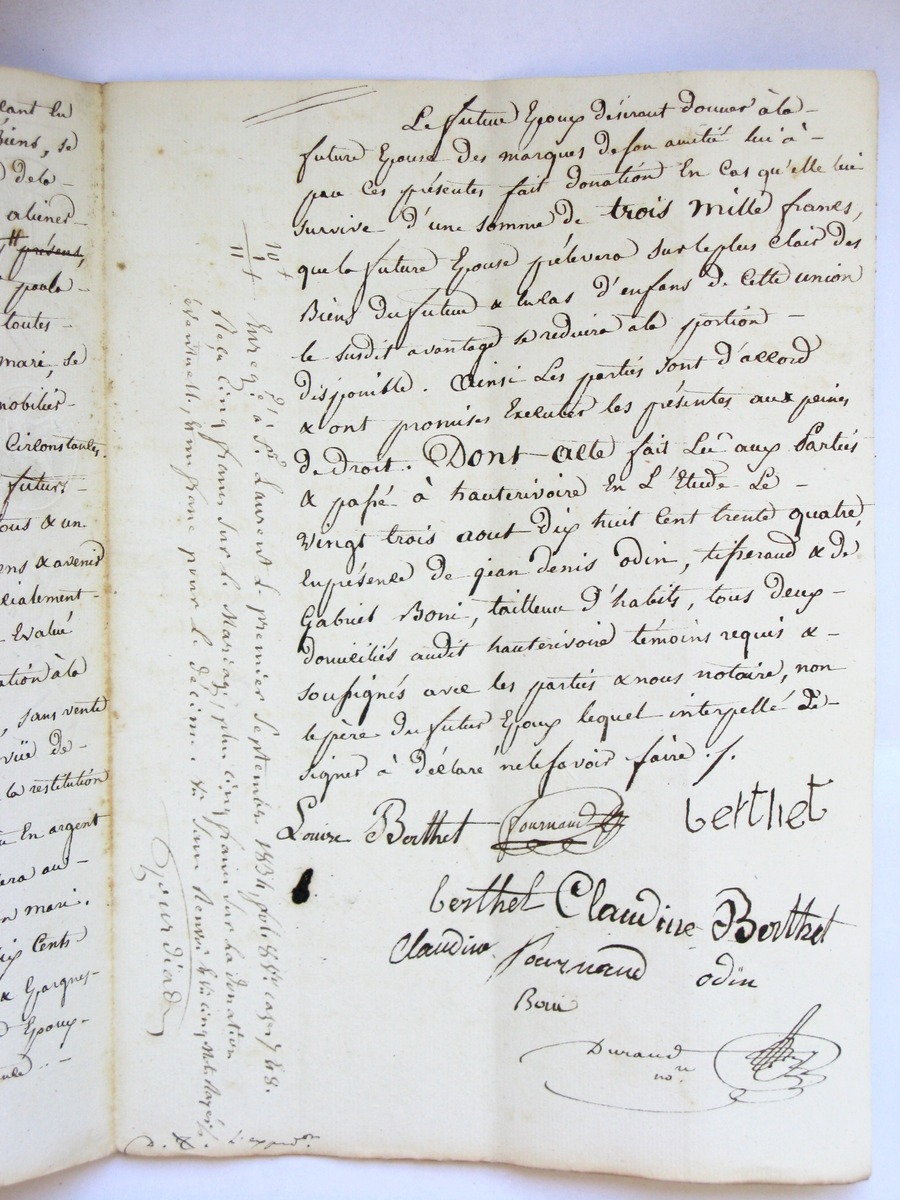 lant lu
Biens, se
dela -
aliener
présent,
paula -
toutes -
mari, se
mobilier -
Circonstantes.
futurs -
ous & un
ens & avenir
cialement -
- Evalué
ation à la
, sans vente
vüe de -
la restitution
En argent
era au -
n mari.
ix Cents
& Gargnes-
Epoux -
Le future Epoux désirant donner à la -
future Epouse des marques de son amitié lui à -
par ces présentes fait donation En Cas qu'elle lui
survive d'une somme de trois Mille francs,
que la future Epouse prélevera sur le plus clair des
Biens du future & En cas d'enfans de Cette union
le susdit avantage se reduira à la portion -
disponible. Ainsi Les parties sont d'accord
& ont promises Executer les présentes aux peines
de droit. Dont acte fait Lû aux Parties
& passé à hauterivoire En L'Etude Le -
vingt trois aout Dix huit Cent trente quatre,
En présence de jean denis Odin, tisserand & de
Gabriel Boni, tailleur d'habits, tous deux -
domiciliés audit hauterivoire témoins requis & -
soussignés avec les parties & nous notaire, non
le père du futur Epoux lequel interpellé De -
signer à déclaré ne le savoir faire ./.
Louise Berthet fournand berthet
berthet Claudine Berthet
Claudine fournand odin
Boni
Durand
no.re
10 f
1
11 f
Enreg.é à S.t Laurent le premier Septembre 1834 folio 88 v.o case 7 & 8.
Reçu cinq francs sur le Mariage, plus cinq francs sur la donation
éventuelle, & un franc pour le décime
Gourdiand